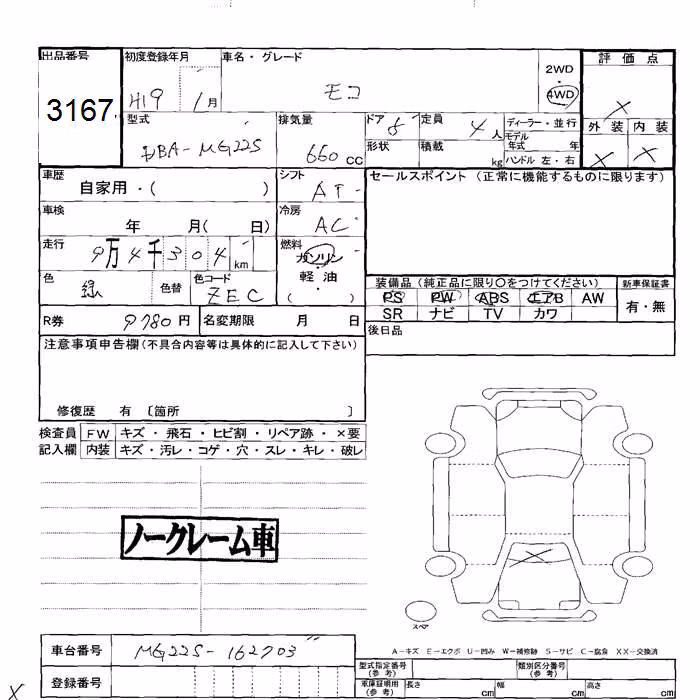 出品番号 初度登録年月 車名・グレード 評価点
3167 H19 1月 モコ 2WD 4WD X
型式 排気量 ドア 5 定員 4人 ディーラー・並行 外装 内装
DBA-MG22S 660 CC 形状 積載 kg モデル年式 年 X X
ハンドル 左・右
車歴 シフト セールスポイント (正常に機能するものに限ります)
自家用・( ) AT
車検 冷房
年 月( 日) AC
走行 燃料
9万4千304 km ガソリン・軽油
色 色替 色コード ( ) 装備品 (純正品に限り○をつけてください) 新車保証書
緑 ZEC PS PW ABS エアB AW 有・無
SR ナビ TV カワ
R券 9780円 名変期限 月 日 後日品
注意事項申告欄(不具合内容等は具体的に記入して下さい)
修復歴 有 〔箇所 〕
検査員 FW キズ・飛石・ヒビ割・リペア跡・×要
記入欄 内装 キズ・汚レ・コゲ・穴・スレ・キレ・破レ
ノークレーム車
X
スペア
A-キズ E-エクボ U-凹み W-補修跡 S-サビ C-腐食 XX-交換済
車台番号 MG22S-162703
型式指定番号(参考) 類別区分番号(参考)
登録番号 車庫証明用(参考) 長さ cm 幅 cm 高さ cm
X